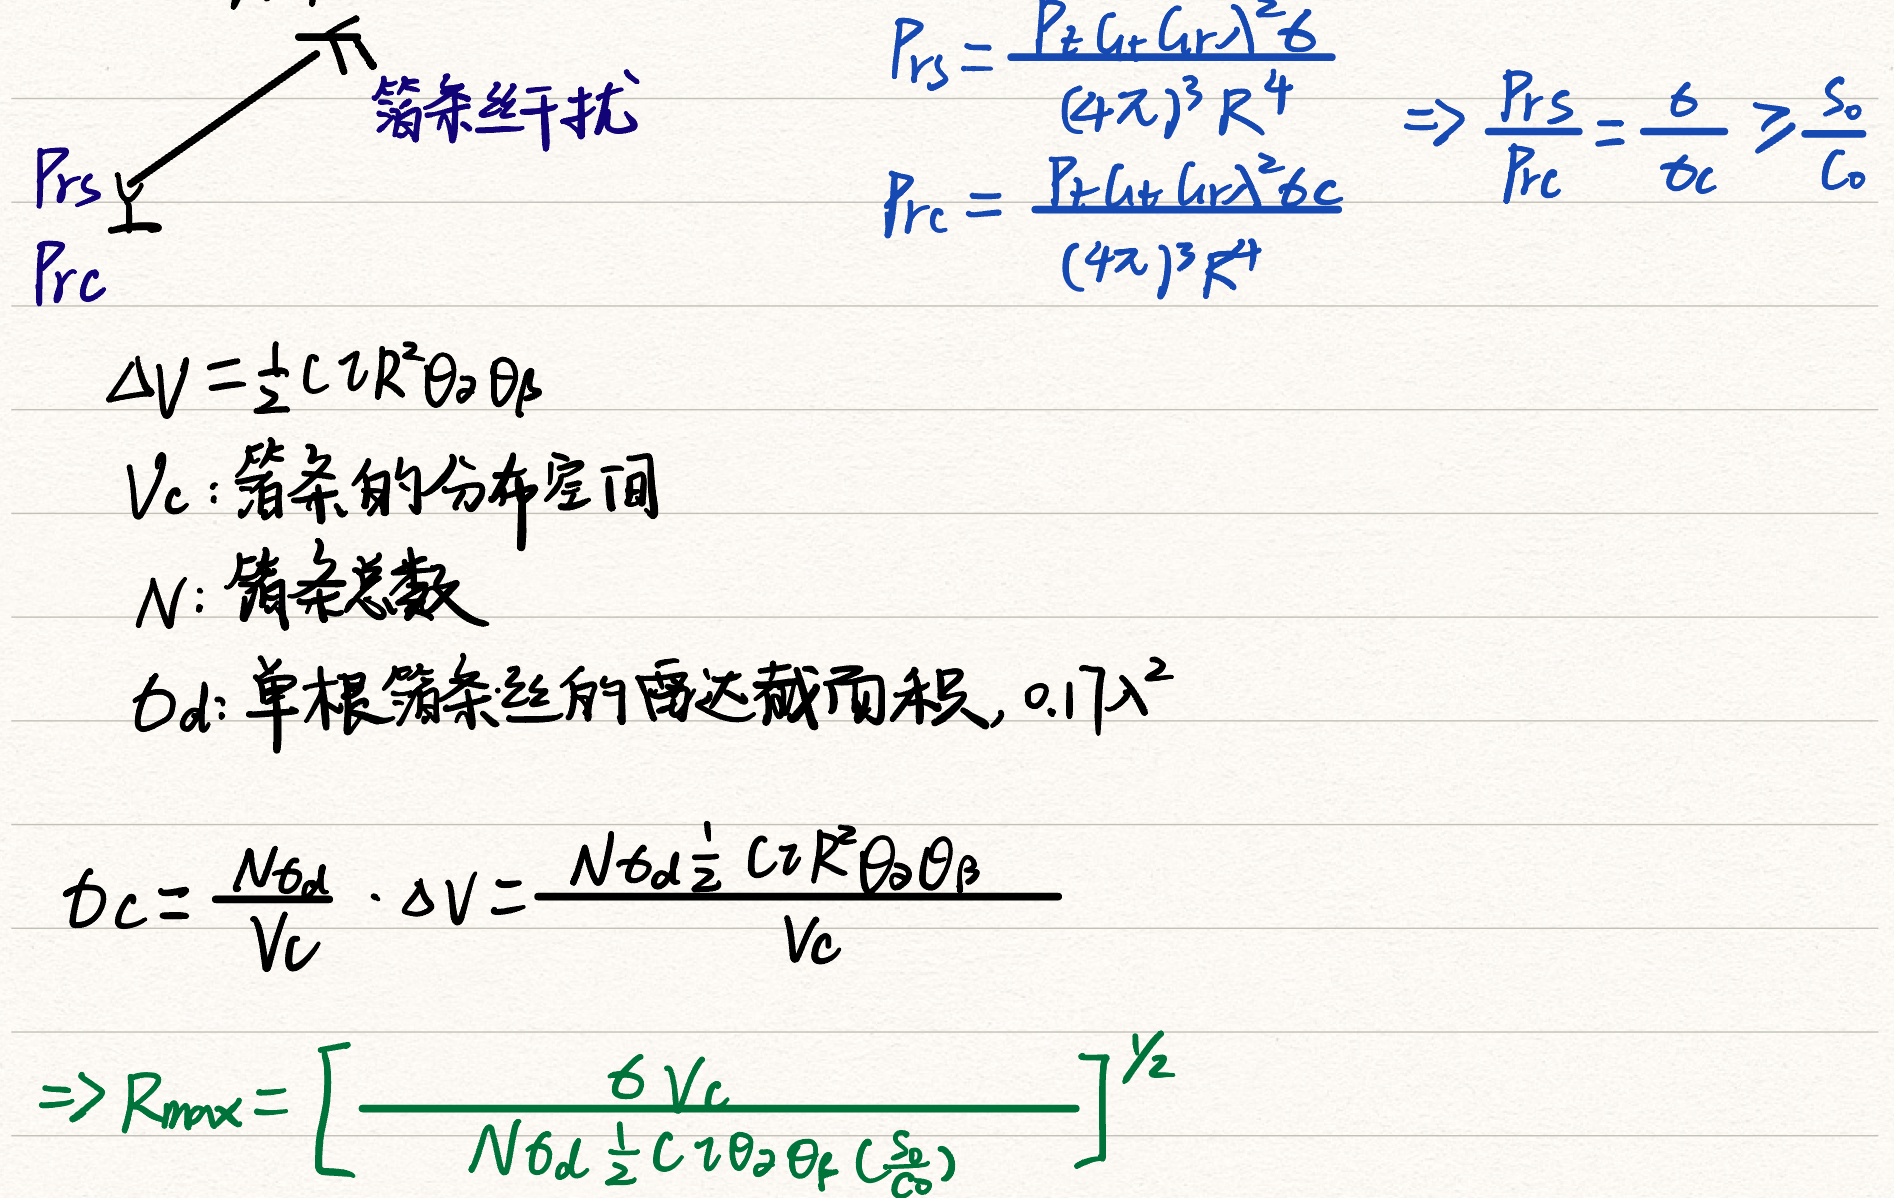 箔条丝干扰
Prs
Prc
Prs = Pt Gt Gr λ² σ / (4π)³ R⁴
Prc = Pt Gt Gr λ² σc / (4π)³ R⁴
=> Prs / Prc = σ / σc ≥ S₀ / C₀
ΔV = ½ C τ R² θ∂ θβ
Vc : 箔条的分布空间
N : 箔条总数
σd : 单根箔条丝的雷达截面积, 0.17λ²
σc = Nσd / Vc · ΔV = Nσd ½ C τ R² θ∂ θβ / Vc
=> Rmax = [ σ Vc / Nσd ½ C τ θ∂ θβ (S₀/C₀) ]^1/2